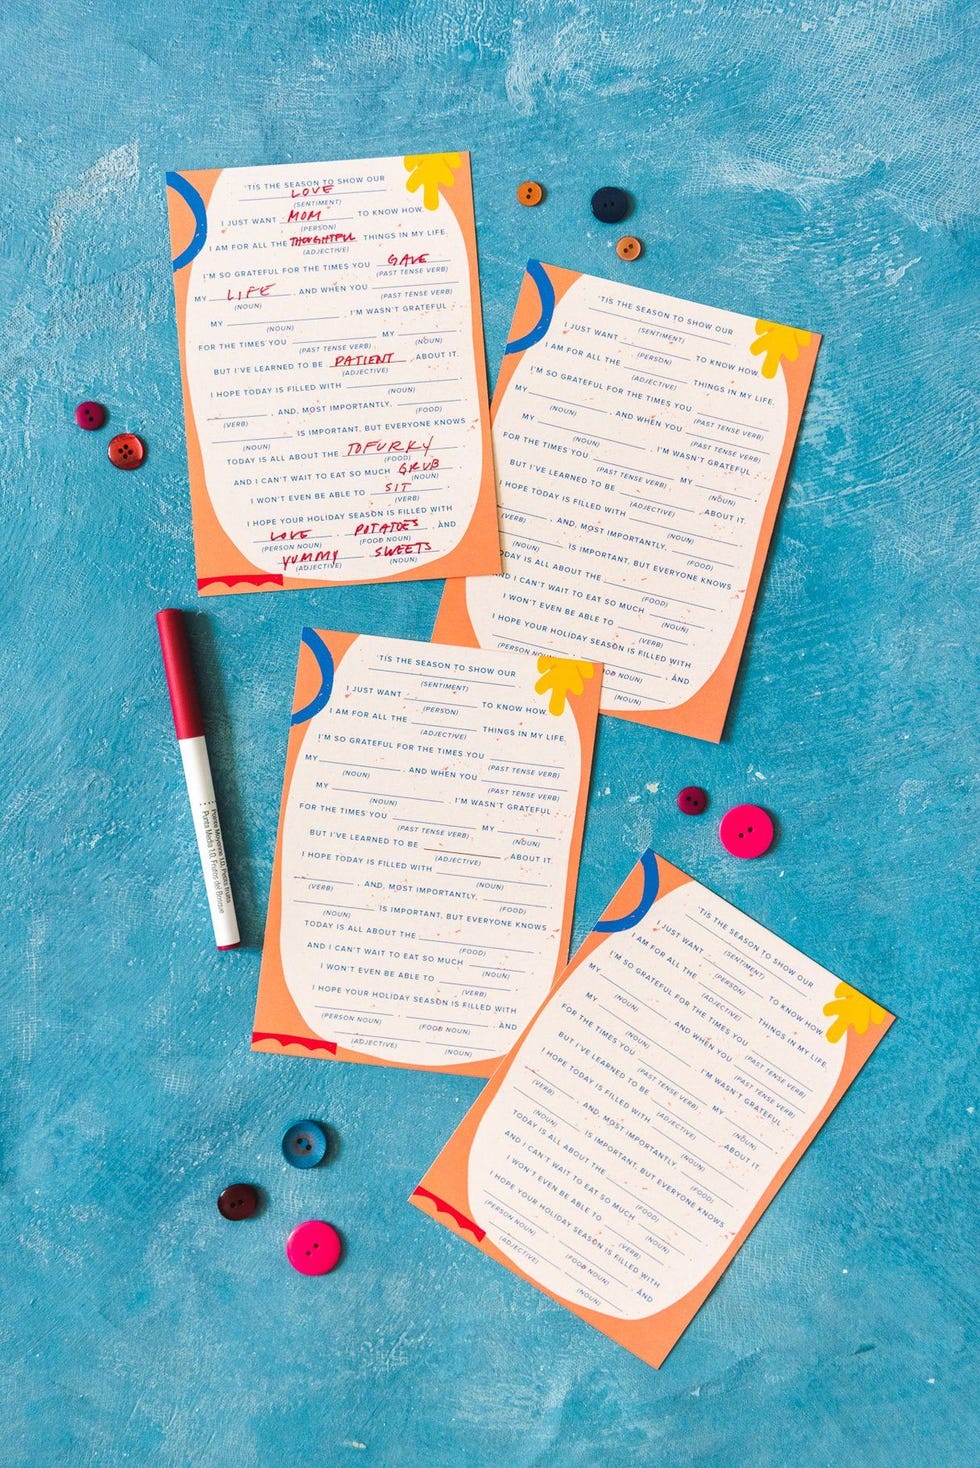 'TIS THE SEASON TO SHOW OUR
LOVE
(SENTIMENT)
I JUST WANT MOM TO KNOW HOW
(PERSON)
I AM FOR ALL THE THOUGHTFUL THINGS IN MY LIFE.
(ADJECTIVE)
I'M SO GRATEFUL FOR THE TIMES YOU GAVE
(PAST TENSE VERB)
MY LIFE, AND WHEN YOU
(NOUN) (PAST TENSE VERB)
MY . I'M WASN'T GRATEFUL
(NOUN)
FOR THE TIMES YOU MY ,
(PAST TENSE VERB) (NOUN)
BUT I'VE LEARNED TO BE PATIENT ABOUT IT.
(ADJECTIVE)
I HOPE TODAY IS FILLED WITH ,
(NOUN)
, AND, MOST IMPORTANTLY, .
(VERB) (FOOD)
IS IMPORTANT, BUT EVERYONE KNOWS
(NOUN)
TODAY IS ALL ABOUT THE TOFURKY
(FOOD)
AND I CAN'T WAIT TO EAT SO MUCH GRUB
(NOUN)
I WON'T EVEN BE ABLE TO SIT .
(VERB)
I HOPE YOUR HOLIDAY SEASON IS FILLED WITH
LOVE , POTATOES , AND
(PERSON NOUN) (FOOD NOUN)
YUMMY SWEETS .
(ADJECTIVE) (NOUN)
'TIS THE SEASON TO SHOW OUR
(SENTIMENT)
I JUST WANT TO KNOW HOW
(PERSON)
I AM FOR ALL THE THINGS IN MY LIFE.
(ADJECTIVE)
I'M SO GRATEFUL FOR THE TIMES YOU
(PAST TENSE VERB)
MY , AND WHEN YOU
(NOUN) (PAST TENSE VERB)
MY . I'M WASN'T GRATEFUL
(NOUN)
FOR THE TIMES YOU MY ,
(PAST TENSE VERB) (NOUN)
BUT I'VE LEARNED TO BE ABOUT IT.
(ADJECTIVE)
I HOPE TODAY IS FILLED WITH ,
(NOUN)
, AND, MOST IMPORTANTLY, .
(VERB) (FOOD)
IS IMPORTANT, BUT EVERYONE KNOWS
(NOUN)
ODAY IS ALL ABOUT THE
(FOOD)
ND I CAN'T WAIT TO EAT SO MUCH
(NOUN)
I WON'T EVEN BE ABLE TO .
(VERB)
I HOPE YOUR HOLIDAY SEASON IS FILLED WITH
, AND
(PERSON NOUN OD NOUN)
(NOUN)
'TIS THE SEASON TO SHOW OUR
(SENTIMENT)
I JUST WANT TO KNOW HOW
(PERSON)
I AM FOR ALL THE THINGS IN MY LIFE.
(ADJECTIVE)
I'M SO GRATEFUL FOR THE TIMES YOU
(PAST TENSE VERB)
MY , AND WHEN YOU
(NOUN) (PAST TENSE VERB)
MY . I'M WASN'T GRATEFUL
(NOUN)
FOR THE TIMES YOU MY ,
(PAST TENSE VERB) (NOUN)
BUT I'VE LEARNED TO BE ABOUT IT.
(ADJECTIVE)
I HOPE TODAY IS FILLED WITH ,
(NOUN)
, AND, MOST IMPORTANTLY, .
(VERB) (FOOD)
IS IMPORTANT, BUT EVERYONE KNOWS
(NOUN)
TODAY IS ALL ABOUT THE
(FOOD)
AND I CAN'T WAIT TO EAT SO MUCH
(NOUN)
I WON'T EVEN BE ABLE TO .
(VERB)
I HOPE YOUR HOLIDAY SEASON IS FILLED WITH
, , AND
(PERSON NOUN) (FOOD NOUN)
(ADJECTIVE) (NOUN)
Pointe Moyenne 1.0, Petits fruits
Punta Media 1.0, Frutos del Bosque
'TIS THE SEASON TO SHOW OUR
(SENTIMENT)
I JUST WANT TO KNOW HOW
(PERSON)
I AM FOR ALL THE THINGS IN MY LIFE.
(ADJECTIVE)
I'M SO GRATEFUL FOR THE TIMES YOU
(PAST TENSE VERB)
MY , AND WHEN YOU
(NOUN) (PAST TENSE VERB)
MY . I'M WASN'T GRATEFUL
(NOUN)
FOR THE TIMES YOU MY ,
(PAST TENSE VERB) (NOUN)
BUT I'VE LEARNED TO BE ABOUT IT.
(ADJECTIVE)
I HOPE TODAY IS FILLED WITH ,
(NOUN)
, AND, MOST IMPORTANTLY, .
(VERB) (FOOD)
IS IMPORTANT, BUT EVERYONE KNOWS
(NOUN)
TODAY IS ALL ABOUT THE
(FOOD)
AND I CAN'T WAIT TO EAT SO MUCH
(NOUN)
I WON'T EVEN BE ABLE TO .
(VERB)
I HOPE YOUR HOLIDAY SEASON IS FILLED WITH
, , AND
(PERSON NOUN) (FOOD NOUN)
(ADJECTIVE) (NOUN)